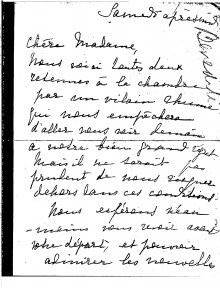 Samedi après midi
Chère Madame,
Nous voici toutes deux
retenues à la chambre
par un vilain rhume
qui nous empêchera
d'aller vous voir demain
à notre bien grand regret
Mais il ne serait pas
prudent de nous risquer
dehors dans ces conditions.
Nous espérons néan
-moins vous voir avant
votre départ, et pouvoir
admirer les nouvelles